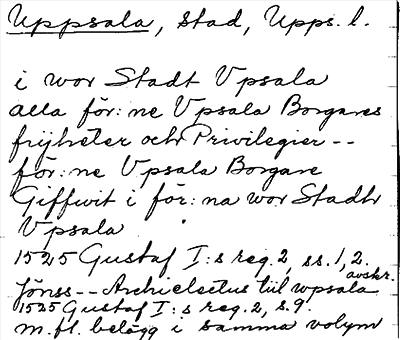 Uppsala, stad, Upps. l.
i wor Stadt Vpsala
alla för:ne Vpsala Borgares
frijheter och Privilegier --
för:ne Vpsala Borgare
Giffwit i för:na wor Stadh
Vpsala
1525 Gustaf I:s reg. 2, ss. 1, 2.
avskr.
Jönss -- Archielectus till wpsala
1525 Gustaf I:s reg. 2, s. 9.
m. fl. belägg i samma volym